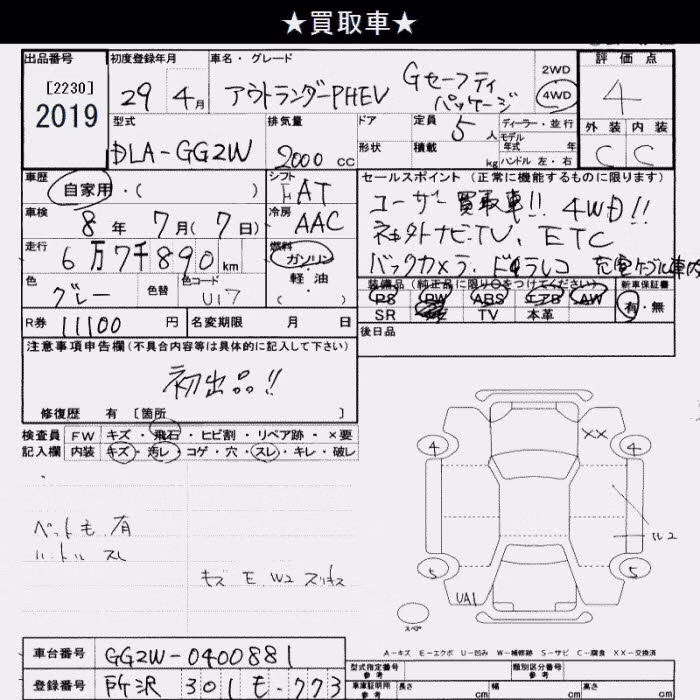 ★買取車★
出品番号
[2230]
2019
初度登録年月
29年 4月
車名・グレード
アウトランダーPHEV Gセーフティパッケージ
2WD
4WD
評価点
4
外装 内装
C C
型式
DLA-GG2W
排気量
2000 CC
ドア
形状
定員 5人
積載 kg
ディーラー・並行
モデル年式 年
ハンドル 左・右
車歴
自家用・( )
シフト
FAT
車検
8年 7月(7日)
冷房
AAC
走行
6万7千890km
燃料
ガソリン
軽・油
( )
色
グレー
色替
色コード
U17
R券 11100円
名変期限 月 日
セールスポイント (正常に機能するものに限ります)
ユーザー買取車!! 4WD!!
社外ナビTV. ETC
バックカメラ. ドラレコ 充電ケーブル車内
装備品(純正品に限り○をつけてください)
PS PW ABS エアB AW
SR TV 本革
新車保証書
有・無
後日品
注意事項申告欄(不具合内容等は具体的に記入して下さい)
初出品!!
修復歴 有 [箇所 ]
検査員 FW キズ・飛石・ヒビ割・リペア跡・×要
記入欄 内装 キズ・汚レ・コゲ・穴・スレ・キレ・破レ
ペット毛 有
ハンドル スレ
キズ E. W2 スリキズ
XX
4 4
W2
5 5
UA1
スペア
A-キズ E-エクボ U-凹み W-補修跡 S-サビ C-腐食 XX-交換済
車台番号 GG2W-0400881
登録番号 所沢 301 も -773
型式指定番号 参考
類別区分番号 参考
車庫証明用 参考 長さ cm 幅 cm 高さ cm